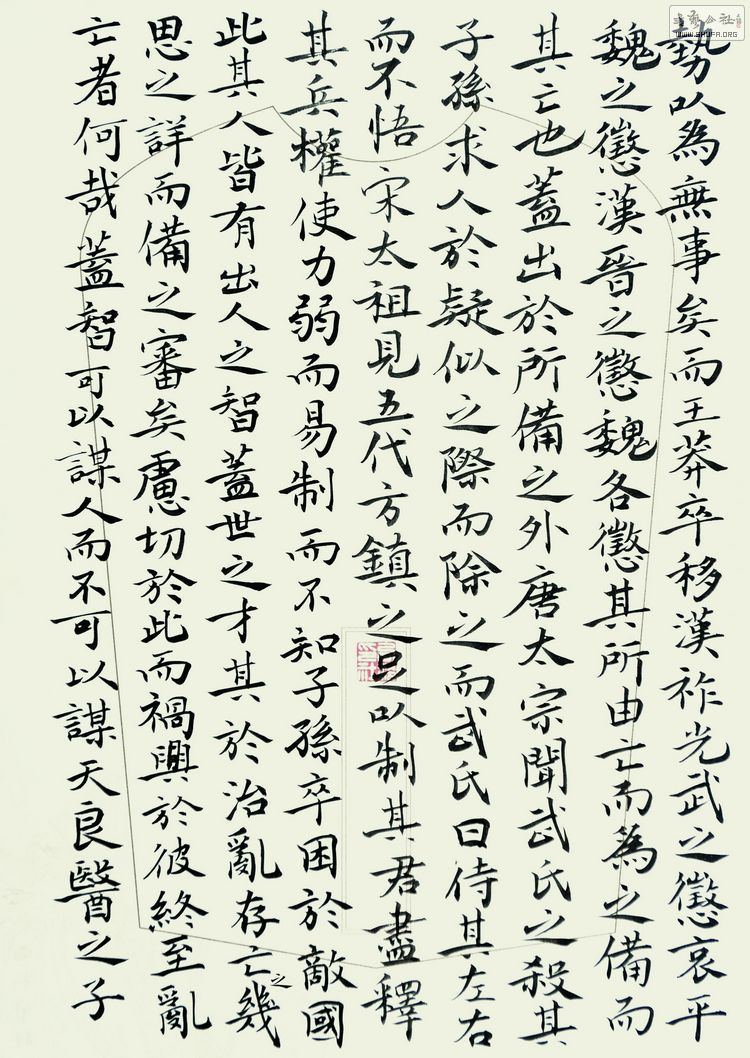 勢以為無事矣而王莽卒移漢祚光武之懲哀平
魏之懲漢晉之懲魏各懲其所由亡而為之備而
其亡也蓋出於所備之外唐太宗聞武氏之殺其
子孫求人於疑似之際而除之而武氏日侍其左右
而不悟宋太祖見五代方鎮之足以制其君盡釋
其兵權使力弱而易制而不知子孫卒困於敵國
此其人皆有出人之智蓋世之才其於治亂存亡之幾
思之詳而備之審矣慮切於此而禍興於彼終至亂
亡者何哉蓋智可以謀人而不可以謀天良醫之子
WWW.SHUFA.ORG